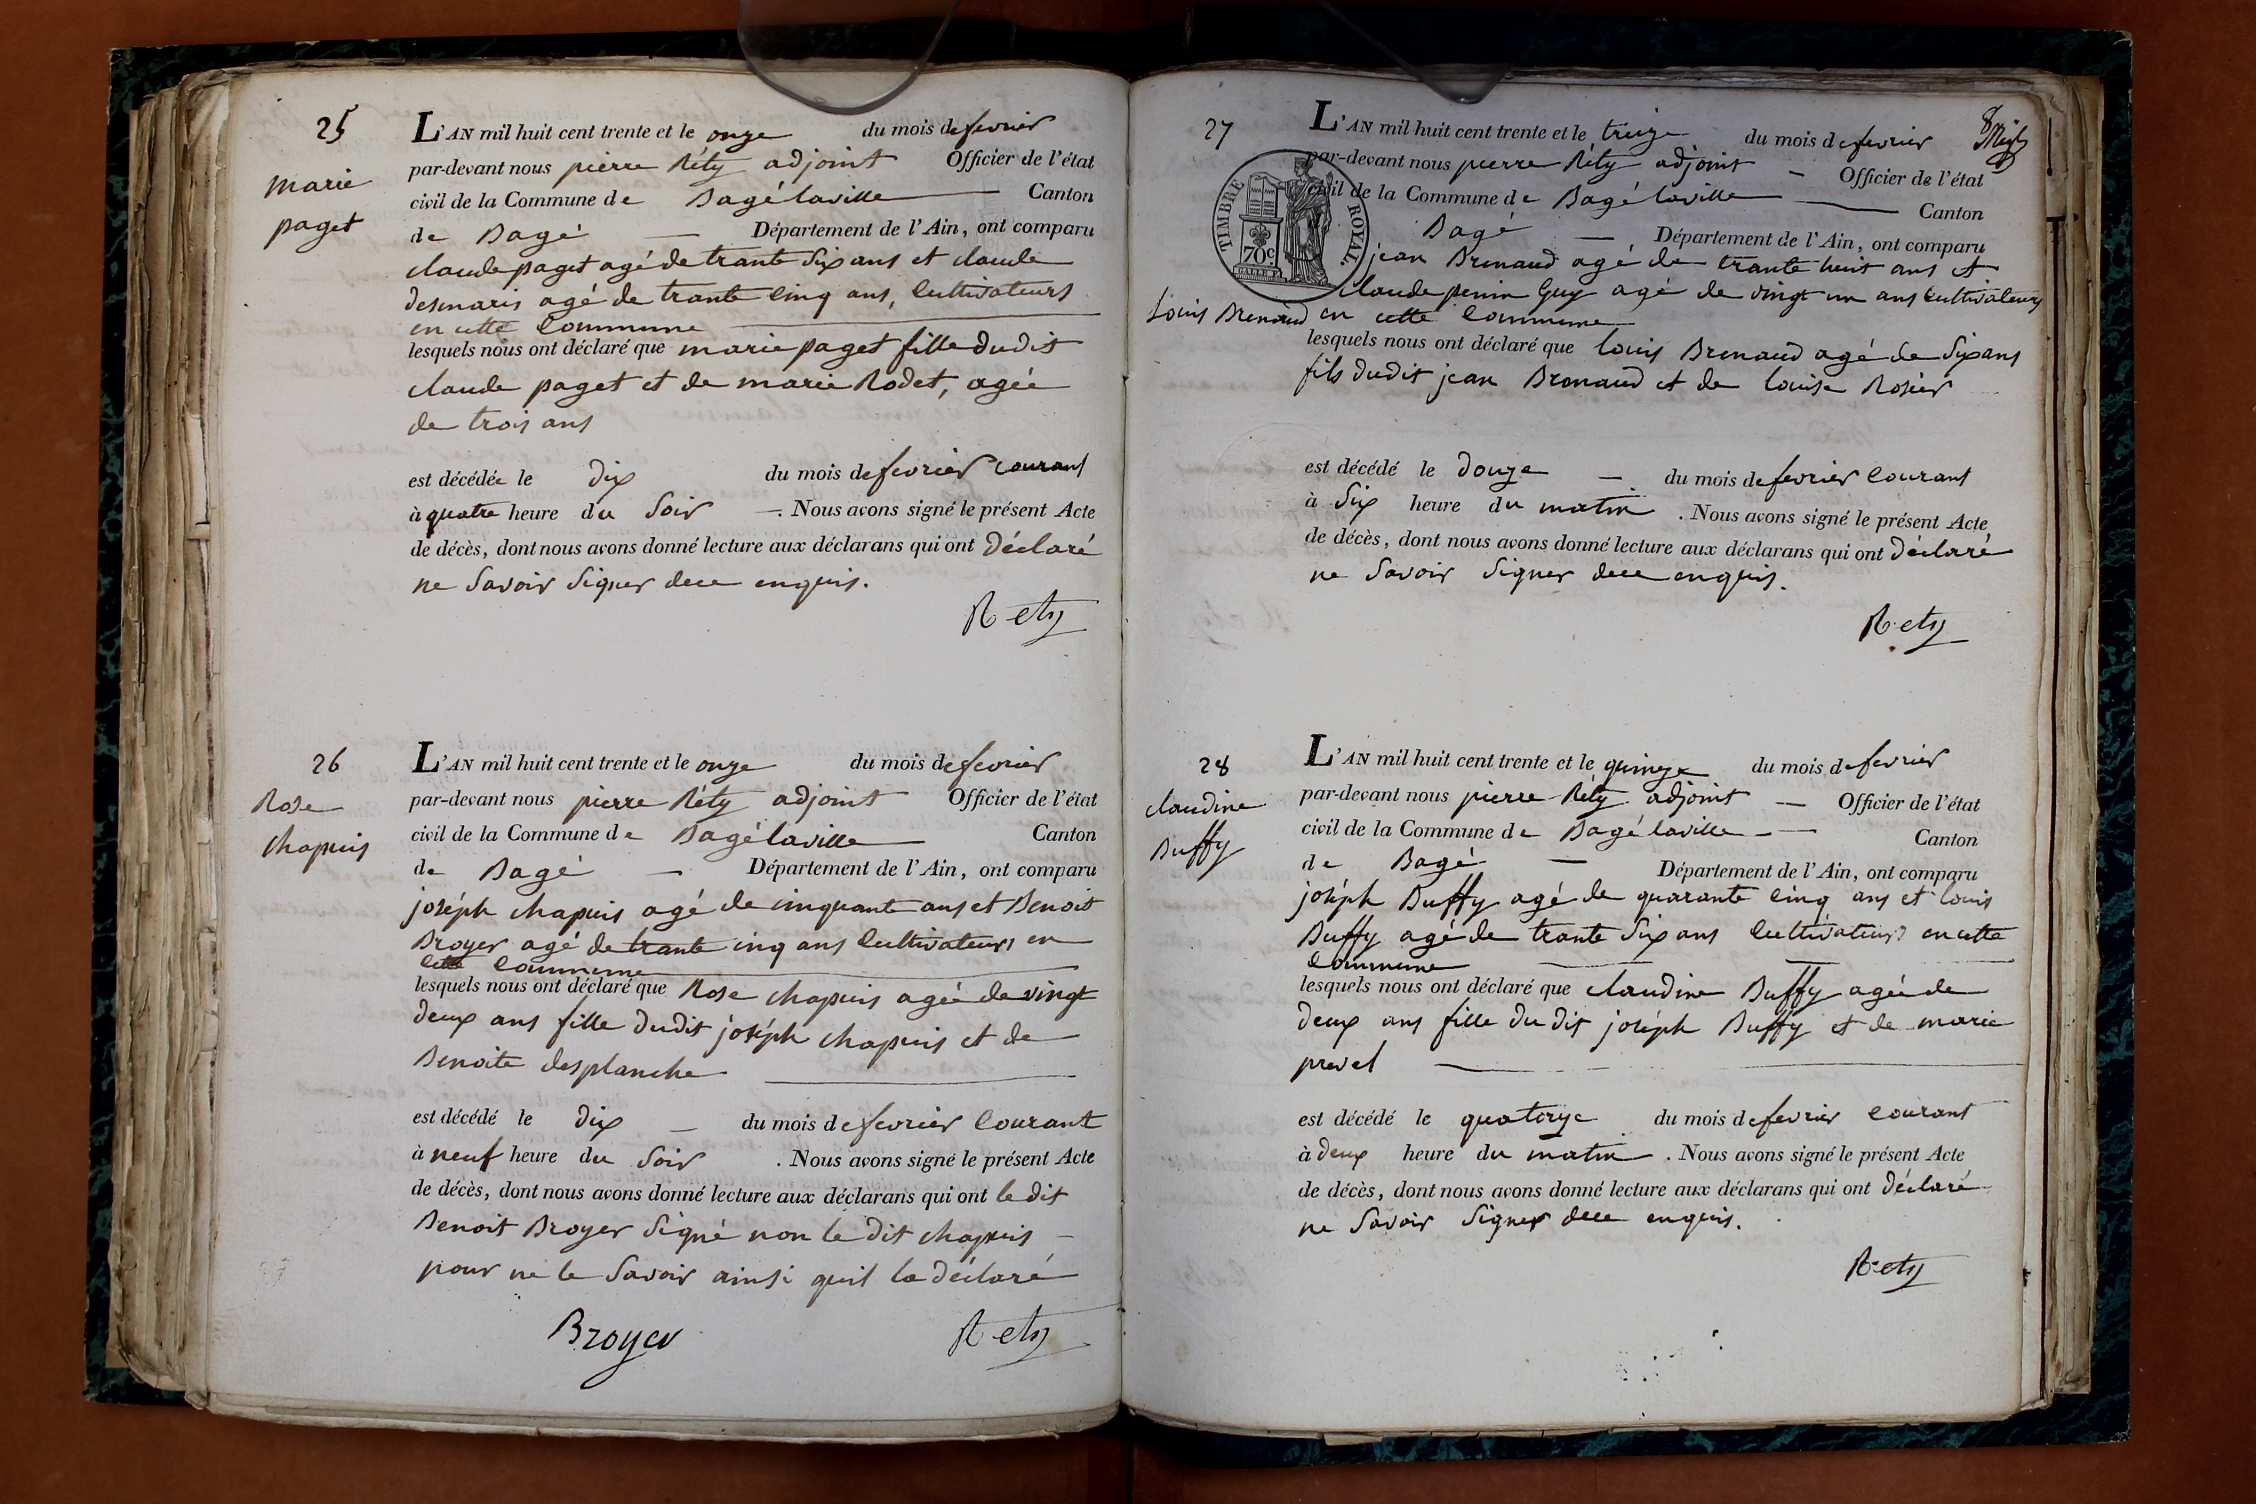 25
marie
paget
L'AN mil huit cent trente et le onze du mois de fevrier
par-devant nous pierre Réty adjoint Officier de l'état
civil de la Commune de Bagé laville Canton
de Bagé Département de l'Ain, ont comparu
claude paget agé de trante six ans et claude
desmaris agé de trante cinq ans, cultivateurs
en cette commune
lesquels nous ont déclaré que marie paget fille dudit
claude paget et de marie Rodet, agée
de trois ans
est décédée le dix du mois de fevrier courant
à quatre heure du soir . Nous avons signé le présent Acte
de décès, dont nous avons donné lecture aux déclarans qui ont déclaré
ne savoir signer dece enquis.
Rety
26
Rose
chapuis
L'AN mil huit cent trente et le onze du mois de fevrier
par-devant nous pierre Réty adjoint Officier de l'état
civil de la Commune de Bagé laville Canton
de Bagé Département de l'Ain, ont comparu
joséph chapuis agé de cinquante ans et Benoit
Broyer agé de trante cinq ans cultivateurs en
cette commune
lesquels nous ont déclaré que Rose chapuis agée de vingt
deux ans fille dudit joséph chapuis et de
Benoite desplanche
est décédé le dix du mois de fevrier courant
à neuf heure du soir . Nous avons signé le présent Acte
de décès, dont nous avons donné lecture aux déclarans qui ont le dit
Benoit Broyer signé non le dit chapuis
pour ne le savoir ainsi quil la déclaré
Broyer Rety
27
Louis Brenaud
TIMBRE ROYAL
70c
L'AN mil huit cent trente et le treize du mois de fevrier
par-devant nous pierre Réty adjoint Officier de l'état
civil de la Commune de Bagé laville Canton
Bagé Département de l'Ain, ont comparu
jean Brenaud agé de trante huit ans et
claude penin Guy agé de vingt un ans cultivateurs
en cette commune
lesquels nous ont déclaré que louis Brenaud agé de six ans
fils dudit jean Brenaud et de louise Rosier
est décédé le douze du mois de fevrier courant
à six heure du matin . Nous avons signé le présent Acte
de décès, dont nous avons donné lecture aux déclarans qui ont déclaré
ne savoir signer dece enquis.
Rety
28
claudine
Buffy
L'AN mil huit cent trente et le quinze du mois de fevrier
par-devant nous pierre Réty adjoint Officier de l'état
civil de la Commune de Bagé laville Canton
de Bagé Département de l'Ain, ont comparu
joséph Buffy agé de quarante cinq ans et louis
Buffy agé de trante six ans cultivateurs en cette
commune
lesquels nous ont déclaré que claudine Buffy agée de
deux ans fille du dit joséph Buffy et de marie
prevel
est décédé le quatorze du mois de fevrier courant
à deux heure du matin . Nous avons signé le présent Acte
de décès, dont nous avons donné lecture aux déclarans qui ont déclaré
ne savoir signer dece enquis.
Rety